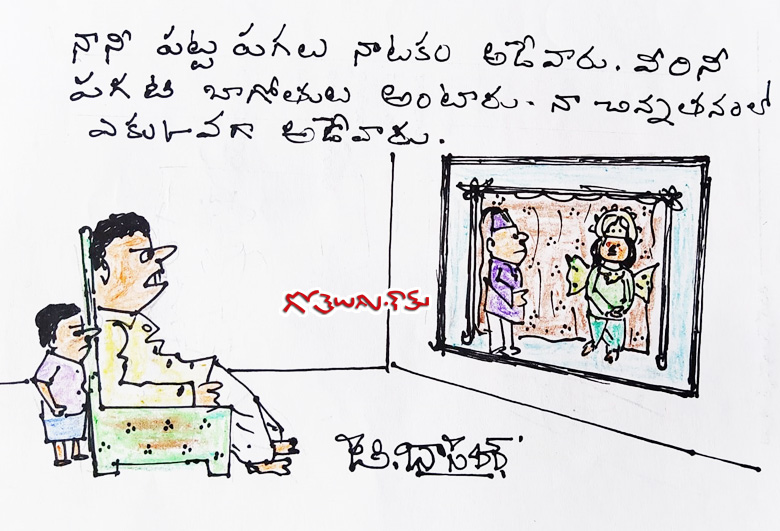 నానీ పట్ట పగలు నాటకం ఆడేవారు. వీరినీ
పగటి బాగోతులు అంటారు. నా చిన్నతనంలో
ఎక్కువగా ఆడేవారు.
గోతెలుగు.కామ్
జె.బి.భాస్కర్